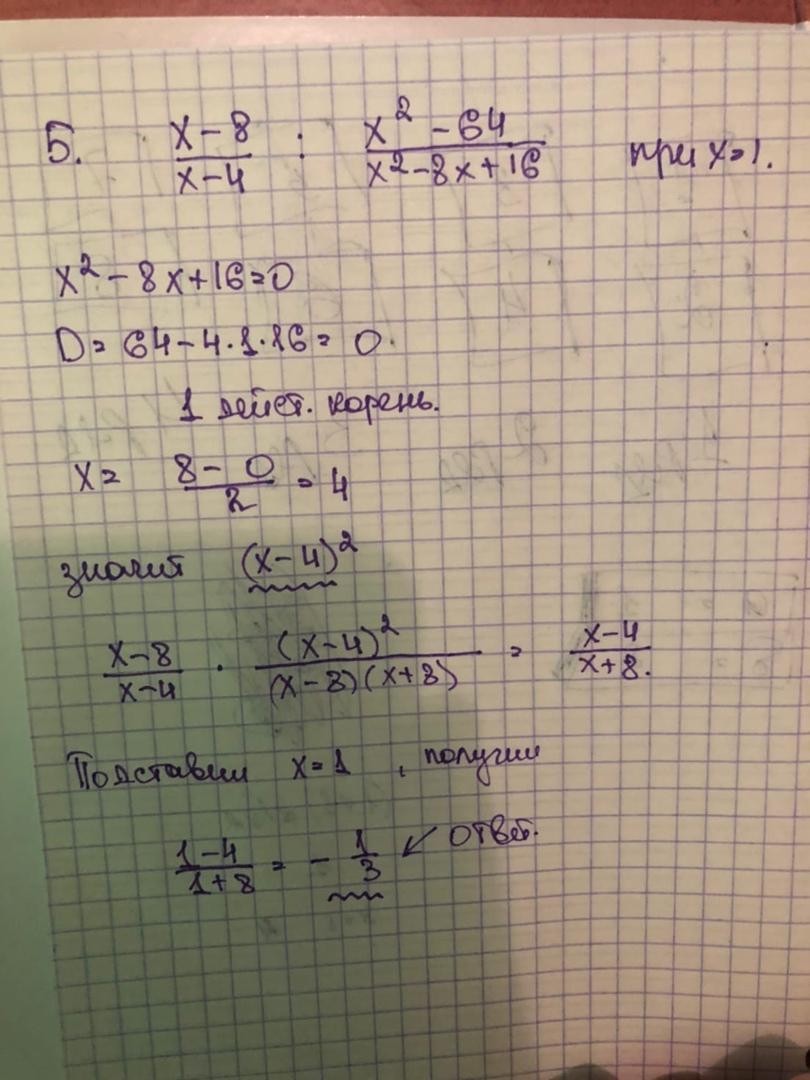 5. (x-8)/(x-4) : (x² - 64)/(x² - 8x + 16) при x=1.
x² - 8x + 16 = 0
D = 64 - 4·1·16 = 0.
1 дейст. корень.
x = (8 - 0)/2 = 4
значит (x-4)²
(x-8)/(x-4) · (x-4)²/((x-8)(x+8)) = (x-4)/(x+8).
Подставим x=1, получим
(1-4)/(1+8) = - 1/3 ↙ ответ.